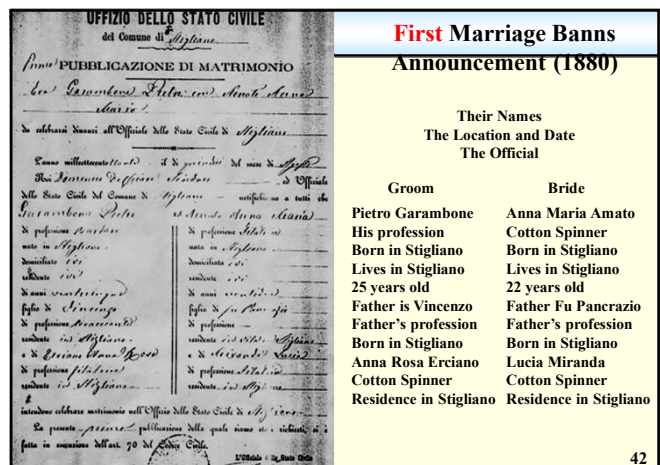 UFFIZIO DELLO STATO CIVILE
del Comune di Stigliano
Prima PUBBLICAZIONE DI MATRIMONIO
Garambone con Anna
Maria
da celebrarsi dinanzi all'Uffiziale dello Stato Civile di Stigliano
L'anno millottocento il di del mese di
Noi ed Uffiziale
dello Stato Civile del Comune di Stigliano notifichiamo a tutti che
Garambone ed Anna Maria
di professione
nato in Stigliano
domiciliato ivi
residente ivi
di anni venticinque
figlio di Vincenzo
di professione
residente in Stigliano
e di Erciano Anna Rosa
di professione filatrice
residente in Stigliano
di professione filatrice
nata in Stigliano
domiciliata ivi
residente ivi
di anni ventidue
figlia di fu
di professione
residente in Stigliano
e di Miranda Lucia
di professione filatrice
residente in Stigliano
intendono celebrare matrimonio nell'Uffizio dello Stato Civile di Stigliano
La presente pubblicazione della quale siamo stati richiesti, si è
fatta in esecuzione dell'art. 70 del Codice Civile.
First Marriage Banns
Announcement (1880)
Their Names
The Location and Date
The Official
Groom
Pietro Garambone
His profession
Born in Stigliano
Lives in Stigliano
25 years old
Father is Vincenzo
Father's profession
Born in Stigliano
Anna Rosa Erciano
Cotton Spinner
Residence in Stigliano
Bride
Anna Maria Amato
Cotton Spinner
Born in Stigliano
Lives in Stigliano
22 years old
Father Fu Pancrazio
Father's profession
Born in Stigliano
Lucia Miranda
Cotton Spinner
Residence in Stigliano
42